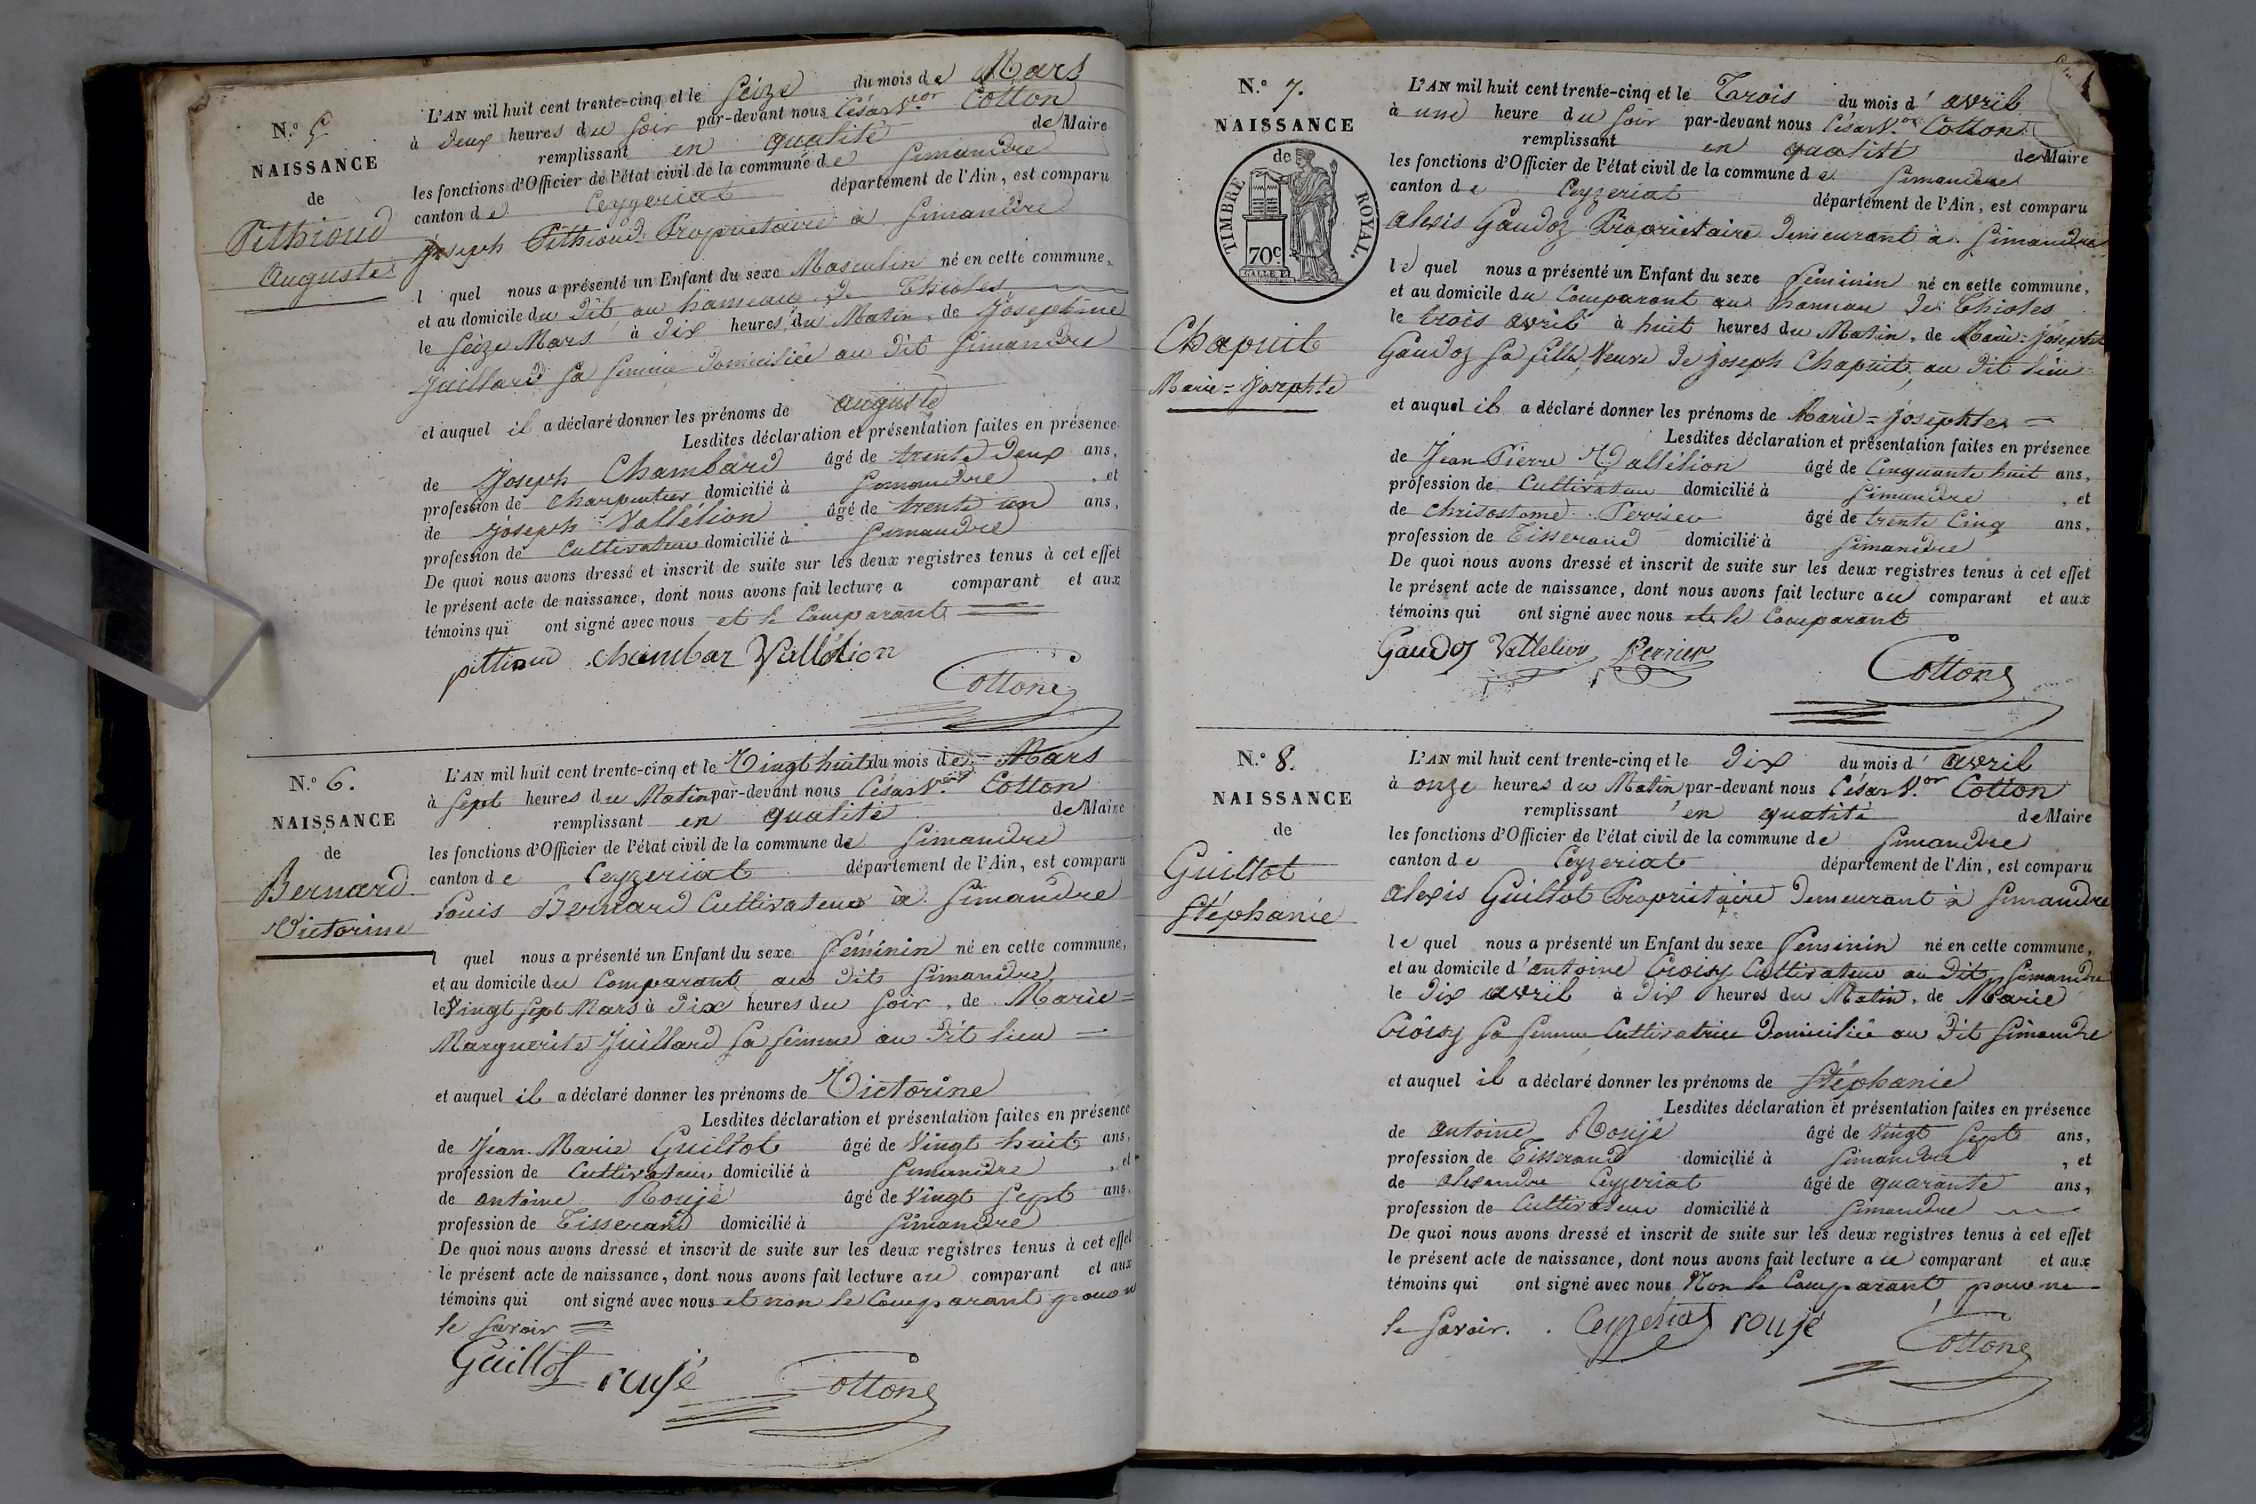 N.º 5
NAISSANCE
de
Pithioud
Auguste
L'AN mil huit cent trente-cinq et le Seize du mois de Mars
à deux heures du Soir par-devant nous César V.tor Cotton
remplissant en qualité de Maire
les fonctions d'Officier de l'état civil de la commune de Simandre
canton de Ceyzeriat département de l'Ain, est comparu
Joseph Pithioud Propriétaire à Simandre
l quel nous a présenté un Enfant du sexe Masculin né en cette commune,
et au domicile du dit au hameau de Thioles
le Seize Mars à dix heures du Matin, de Josephine
Juillard sa femme domiciliée au dit Simandre
et auquel il a déclaré donner les prénoms de auguste
Lesdites déclaration et présentation faites en présence
de Joseph Chambard âgé de trente deux ans,
profession de Charpentier domicilié à Simandre , et
de Joseph Vallélion âgé de trente un ans,
profession de Cultivateur domicilié à Simandre
De quoi nous avons dressé et inscrit de suite sur les deux registres tenus à cet effet
le présent acte de naissance, dont nous avons fait lecture a comparant et aux
témoins qui ont signé avec nous et le Comparant
chambar Vallélion
Cotton
N.º 6.
NAISSANCE
de
Bernard
Victorine
L'AN mil huit cent trente-cinq et le Vingt huit du mois de Mars
à Sept heures du Matin par-devant nous César V.tor Cotton
remplissant en qualité de Maire
les fonctions d'Officier de l'état civil de la commune de Simandre
canton de Ceyzeriat département de l'Ain, est comparu
Louis Bernard Cultivateur à Simandre
l quel nous a présenté un Enfant du sexe Féminin né en cette commune,
et au domicile du Comparant au dit Simandre
le Vingt Sept Mars à Dix heures du Soir, de Marie=
Marguerite Juillard sa femme au dit lieu
et auquel il a déclaré donner les prénoms de Victorine
Lesdites déclaration et présentation faites en présence
de Jean-Marie Guillot âgé de Vingt huit ans,
profession de Cultivateur domicilié à Simandre , et
de antoine Roujé âgé de Vingt Sept ans.
profession de Tisserand domicilié à Simandre
De quoi nous avons dressé et inscrit de suite sur les deux registres tenus à cet effet
le présent acte de naissance, dont nous avons fait lecture au comparant et aux
témoins qui ont signé avec nous et non le Comparant pour ne
le savoir
Guillot roujé Cotton
N.º 7.
NAISSANCE
de
TIMBRE ROYAL.
70c
Chapuit
Marie=Josephte
L'AN mil huit cent trente-cinq et le Trois du mois d' avril
à une heure du Soir par-devant nous César V.or Cotton
remplissant en qualité de Maire
les fonctions d'Officier de l'état civil de la commune de Simandre
canton de Ceyzeriat département de l'Ain, est comparu
Alexis Gaudoz Propriétaire demeurant à Simandre
le quel nous a présenté un Enfant du sexe Féminin né en cette commune,
et au domicile du Comparant au hameau de Thioles
le trois avril à huit heures du Matin, de Marie=Josephte
Gaudoz sa fille Veuve de Joseph Chapuit, au dit lieu
et auquel il a déclaré donner les prénoms de Marie=Josephte
Lesdites déclaration et présentation faites en présence
de Jean Pierre Vallélion âgé de Cinquante huit ans,
profession de Cultivateur domicilié à Simandre , et
de Chrisostome Perrier âgé de trente Cinq ans,
profession de Tisserand domicilié à Simandre
De quoi nous avons dressé et inscrit de suite sur les deux registres tenus à cet effet
le présent acte de naissance, dont nous avons fait lecture au comparant et aux
témoins qui ont signé avec nous et le Comparant
Gaudoz Vallelion Perrier
Cotton
N.º 8.
NAISSANCE
de
Guillot
Stéphanie
L'AN mil huit cent trente-cinq et le Dix du mois d' avril
à onze heures du Matin par-devant nous César V.or Cotton
remplissant en qualité de Maire
les fonctions d'Officier de l'état civil de la commune de Simandre
canton de Ceyzeriat département de l'Ain, est comparu
Alexis Guillot Propriétaire demeurant à Simandre
le quel nous a présenté un Enfant du sexe Féminin né en cette commune,
et au domicile d'antoine Croisy Cultivateur au dit Simandre
le Dix avril à Dix heures du Matin, de Marie
Croisy sa femme Cultivatrice Domiciliée au dit Simandre
et auquel il a déclaré donner les prénoms de Stéphanie
Lesdites déclaration et présentation faites en présence
de antoine Roujé âgé de Vingt Sept ans,
profession de Tisserand domicilié à Simandre , et
de alexandre Ceyzeriat âgé de quarante ans,
profession de Cultivateur domicilié à Simandre
De quoi nous avons dressé et inscrit de suite sur les deux registres tenus à cet effet
le présent acte de naissance, dont nous avons fait lecture au comparant et aux
témoins qui ont signé avec nous Non le Comparant pour ne
le savoir. Ceyzeriat roujé Cotton